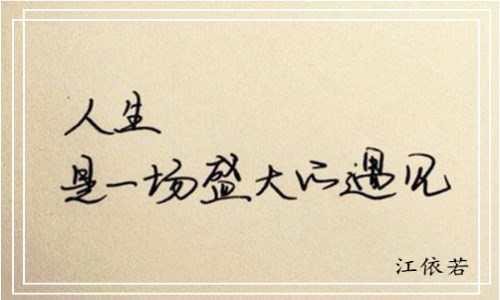 人生
是一场盛大的遇见
江依若